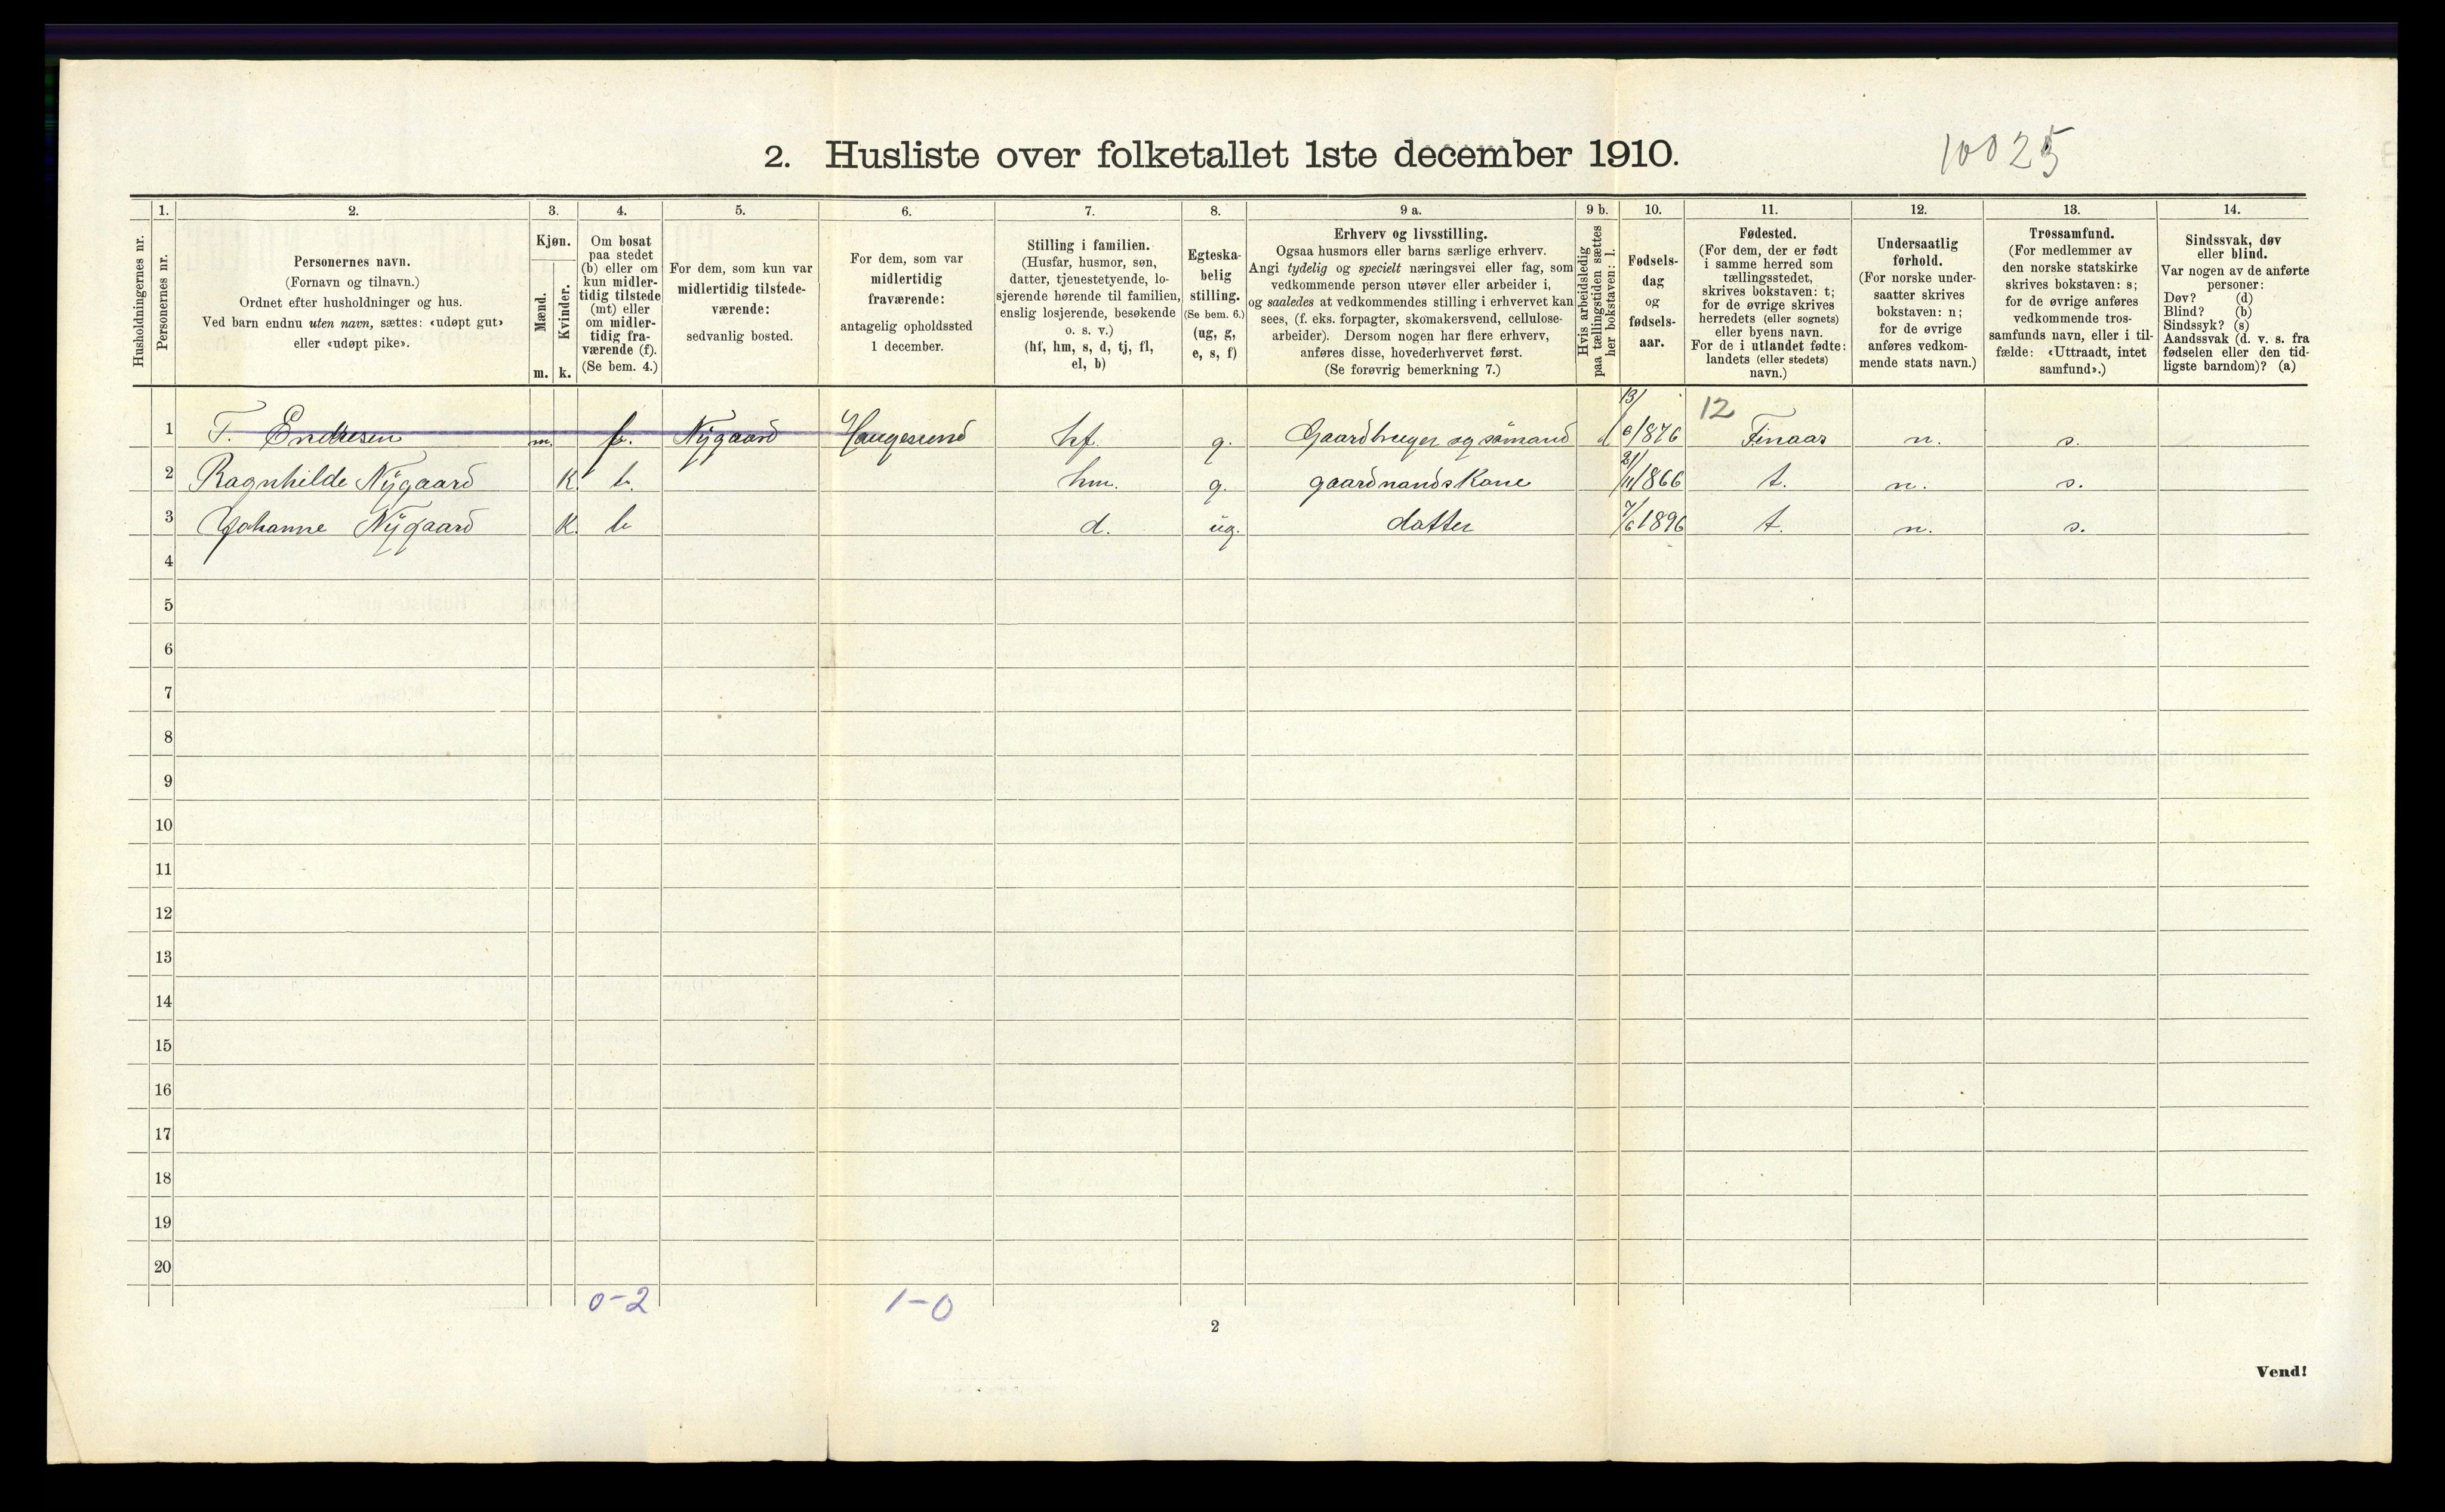 2. Husliste over folketallet 1ste december 1910.
10025
1. 2. 3. 4. 5. 6. 7. 8. 9 a. 9 b. 10. 11. 12. 13. 14.
Husholdningernes nr.
Personernes nr.
Personernes navn.
(Fornavn og tilnavn.)
Ordnet efter husholdninger og hus.
Ved barn endnu uten navn, sættes: «udøpt gut»
eller «udøpt pike».
Kjøn.
Mænd.
Kvinder.
m. k.
Om bosat
paa stedet
(b) eller om
kun midler-
tidig tilstede
(mt) eller
om midler-
tidig fra-
værende (f).
(Se bem. 4.)
For dem, som kun var
midlertidig tilstede-
værende:
sedvanlig bosted.
For dem, som var
midlertidig
fraværende:
antagelig opholdssted
1 december.
Stilling i familien.
(Husfar, husmor, søn,
datter, tjenestetyende, lo-
sjerende hørende til familien,
enslig losjerende, besøkende
o. s. v.)
(hf, hm, s, d, tj, fl,
el, b)
Egteska-
belig
stilling.
(Se bem. 6.)
(ug, g,
e, s, f)
Erhverv og livsstilling.
Ogsaa husmors eller barns særlige erhverv.
Angi tydelig og specielt næringsvei eller fag, som
vedkommende person utøver eller arbeider i,
og saaledes at vedkommendes stilling i erhvervet kan
sees, (f. eks. forpagter, skomakersvend, cellulose-
arbeider). Dersom nogen har flere erhverv,
anføres disse, hovederhvervet først.
(Se forøvrig bemerkning 7.)
Hvis arbeidsledig
paa tællingstiden sættes
her bokstaven: l.
Fødsels-
dag
og
fødsels-
aar.
Fødested.
(For dem, der er født
i samme herred som
tællingsstedet,
skrives bokstaven: t;
for de øvrige skrives
herredets (eller sognets)
eller byens navn.
For de i utlandet fødte:
landets (eller stedets)
navn.)
Undersaatlig
forhold.
(For norske under-
saatter skrives
bokstaven: n;
for de øvrige
anføres vedkom-
mende stats navn.)
Trossamfund.
(For medlemmer av
den norske statskirke
skrives bokstaven: s;
for de øvrige anføres
vedkommende tros-
samfunds navn, eller i til-
fælde: «Uttraadt, intet
samfund».)
Sindssvak, døv
eller blind.
Var nogen av de anførte
personer:
Døv? (d)
Blind? (b)
Sindssyk? (s)
Aandssvak (d. v. s. fra
fødselen eller den tid-
ligste barndom)? (a)
12
1 T. Endresen m. f. Nÿgaard Haugesund hf. g. Gaardbruger og sömand Finaas n. s.
2 Ragnhilde Nÿgaard K. b. hm. g. gaardmandskone 21/11 1866 t. n. s.
3 Johanne Nÿgaard K. b d. ug. datter 7/6 1896 t. n. s.
4
5
6
7
8
9
10
11
12
13
14
15
16
17
18
19
20
0-2 1-0
2
Vend!